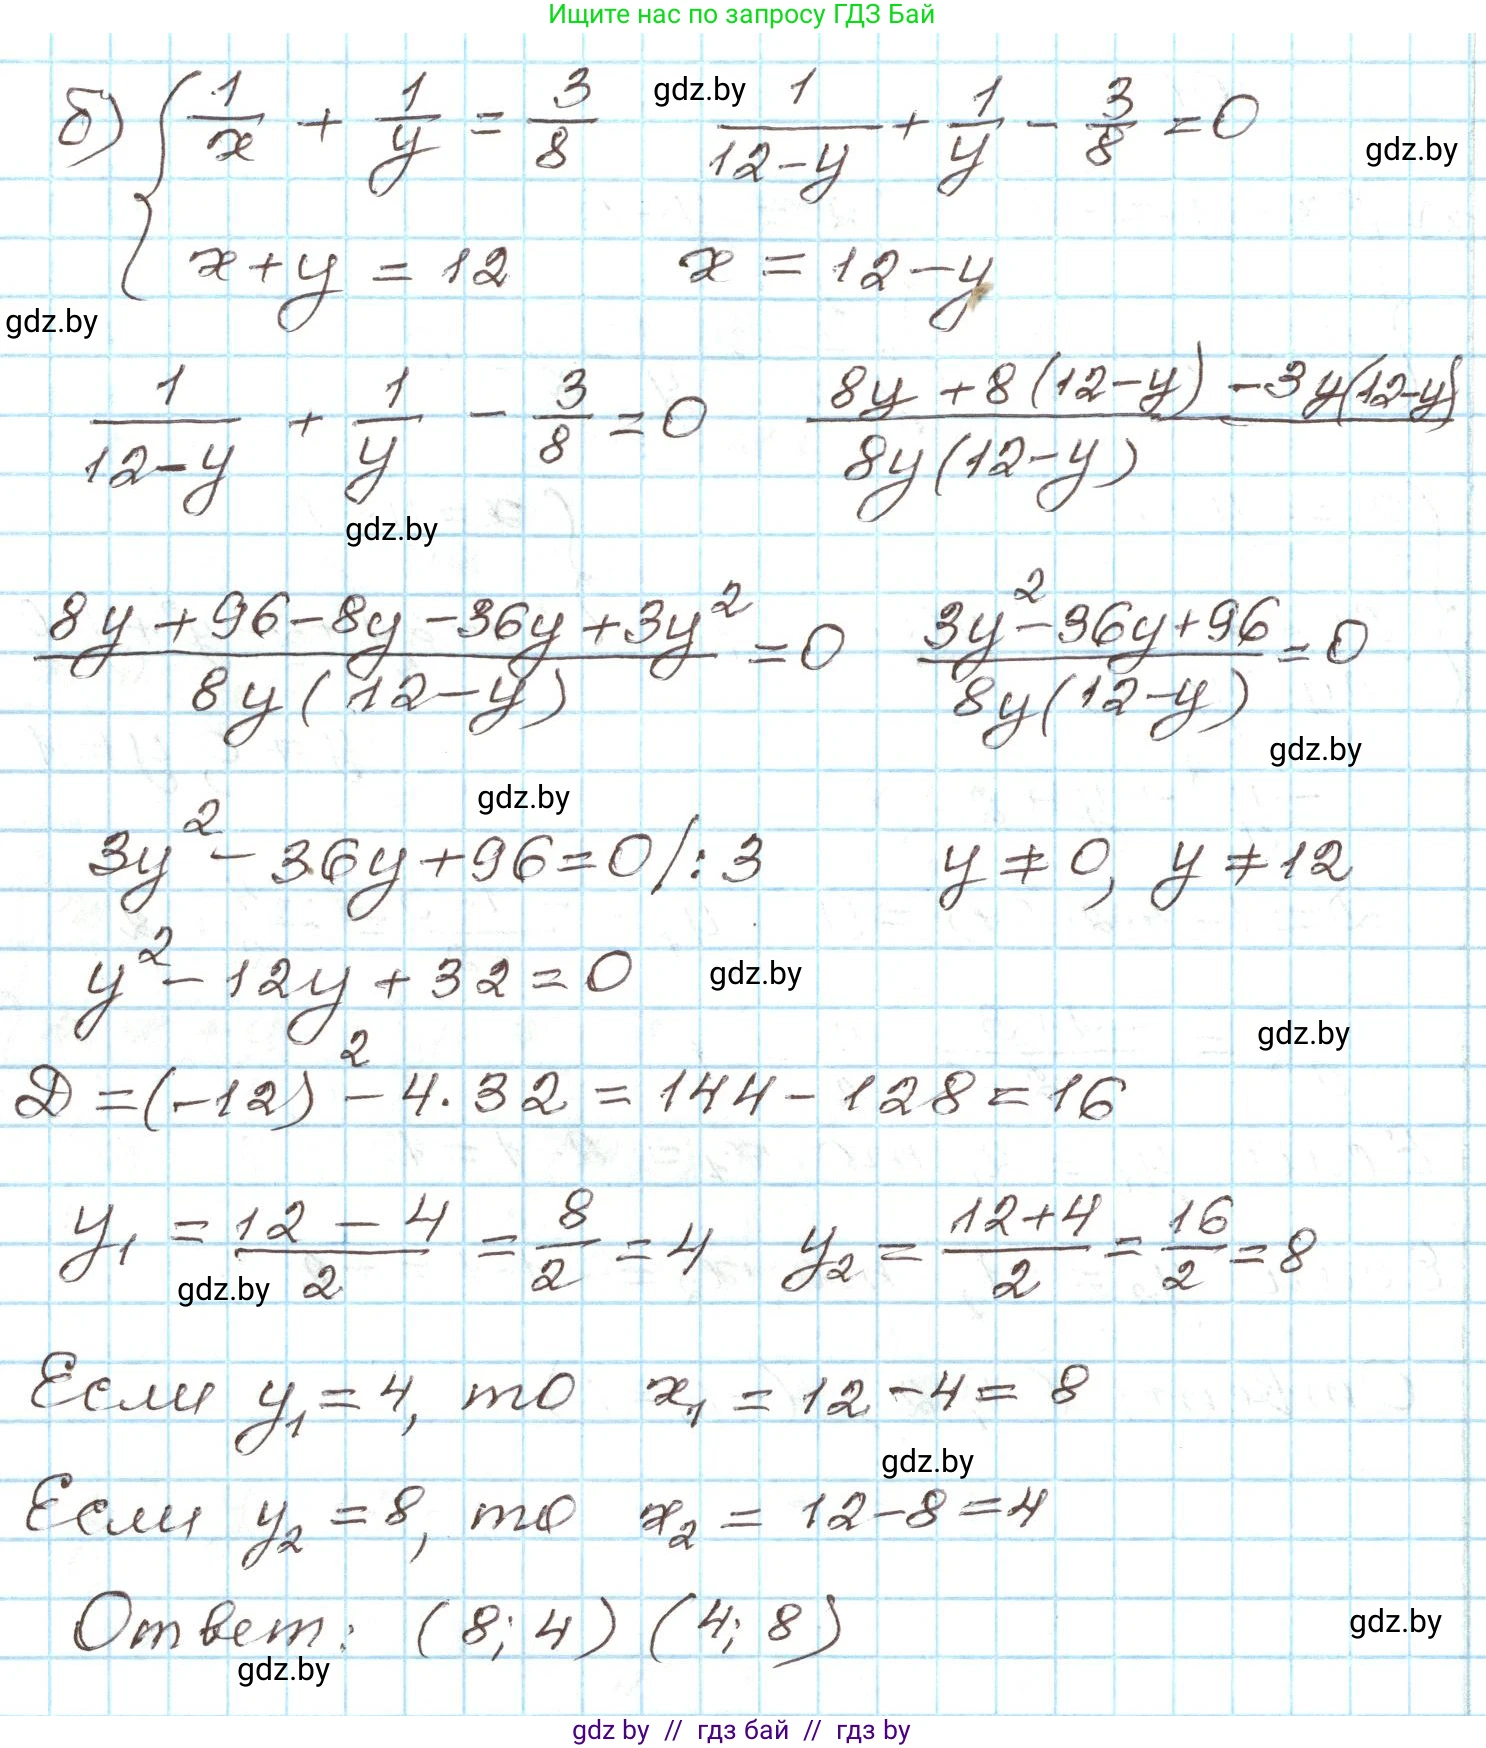 Ищите нас по запросу ГДЗ Бай
б) { 1/x + 1/y = 3/8   gdz.by   1/(12-y) + 1/y - 3/8 = 0   gdz.by
x + y = 12   x = 12 - y
gdz.by
1/(12-y) + 1/y - 3/8 = 0   (8y + 8(12-y) - 3y(12-y))/(8y(12-y))
gdz.by
(8y + 96 - 8y - 36y + 3y²)/(8y(12-y)) = 0   (3y² - 36y + 96)/(8y(12-y)) = 0
gdz.by
gdz.by
3y² - 36y + 96 = 0 /: 3   y ≠ 0, y ≠ 12
y² - 12y + 32 = 0   gdz.by
gdz.by
Д = (-12)² - 4 · 32 = 144 - 128 = 16
y₁ = (12 - 4)/2 = 8/2 = 4   y₂ = (12+4)/2 = 16/2 = 8
gdz.by
Если y₁ = 4, то x₁ = 12 - 4 = 8
gdz.by
Если y₂ = 8, то x₂ = 12 - 8 = 4
Ответ: (8; 4) (4; 8)   gdz.by
gdz.by
gdz by // гдз бай // гдз by